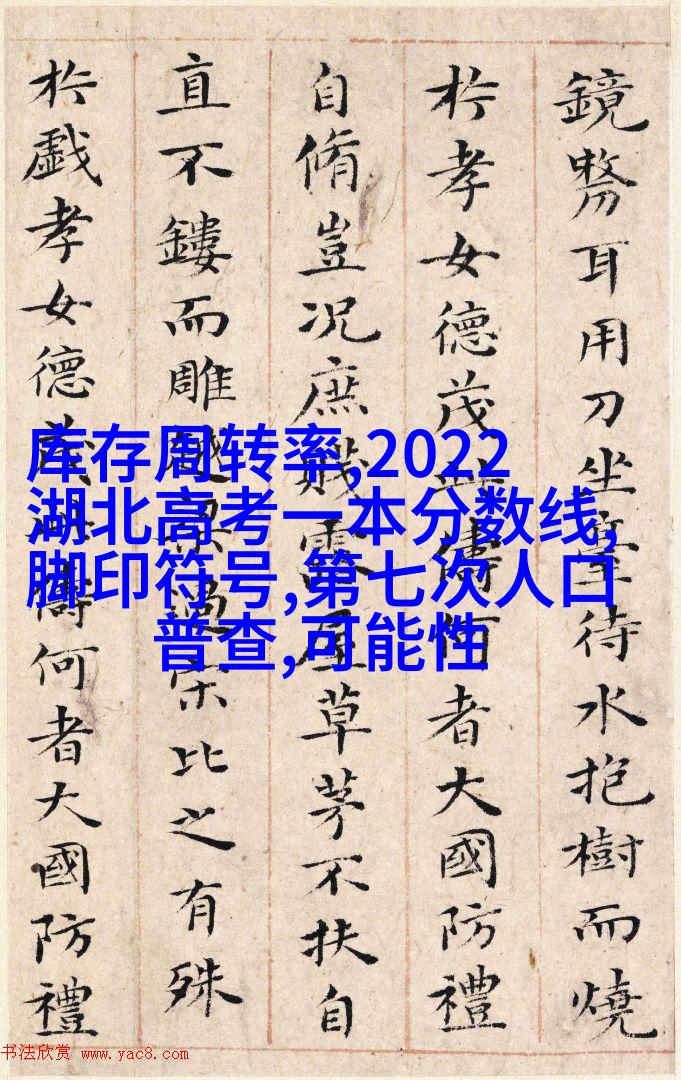 鏡剺耳用刀坐臺待水抱樹而燒
扵孝女德茂此儔何者大國防禮
自脩豈况庶賤露屋草茅不扶自
直不鏤而雕越梁過宋比之有殊
扵戲孝女德茂此儔何者大國防禮
库存周转率,2022
湖北高考一本分数线,
脚印符号,第七次人口
普查,可能性
书法欣赏 www.yac8.com